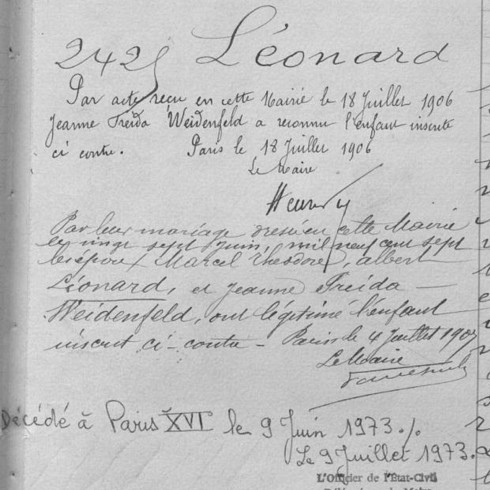 2425 Léonard
Par acte reçu en cette Mairie le 18 Juillet 1906
Jeanne Freida Weidenfeld a reconnu l'enfant inscrite
ci contre. Paris le 18 Juillet 1906
Le Maire
Par leur mariage dressé en cette Mairie
le vingt sept Juin, mil neuf cent sept
les époux Marcel Théodore, albert
Léonard, et Jeanne Freida
Weidenfeld, ont légitimé l'enfant
inscrit ci-contre - Paris le 4 Juillet 1907
Le Maire
Décédé à Paris XVI le 9 Juin 1973./.
Le 9 Juillet 1973.
L'Officier de l'État-Civil